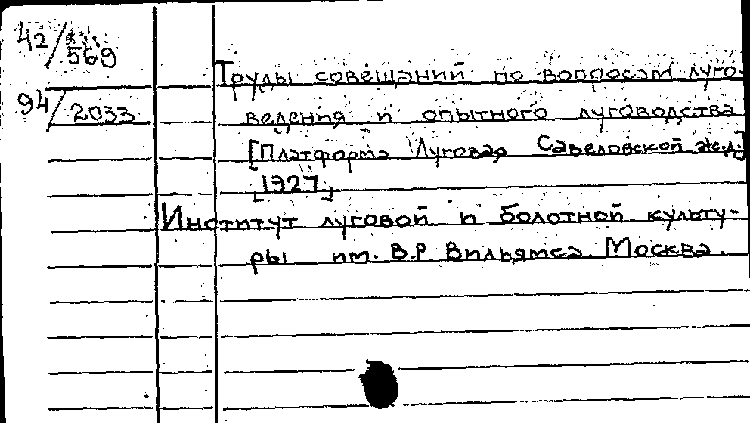 42/569
Труды совещаний по вопросам луго-
94/2033
ведения и опытного луговодства
[Платформа Луговая Савеловской ж.д.]
[1927]
Институт луговой и болотной культу-
ры им. В.Р Вильямса. Москва.